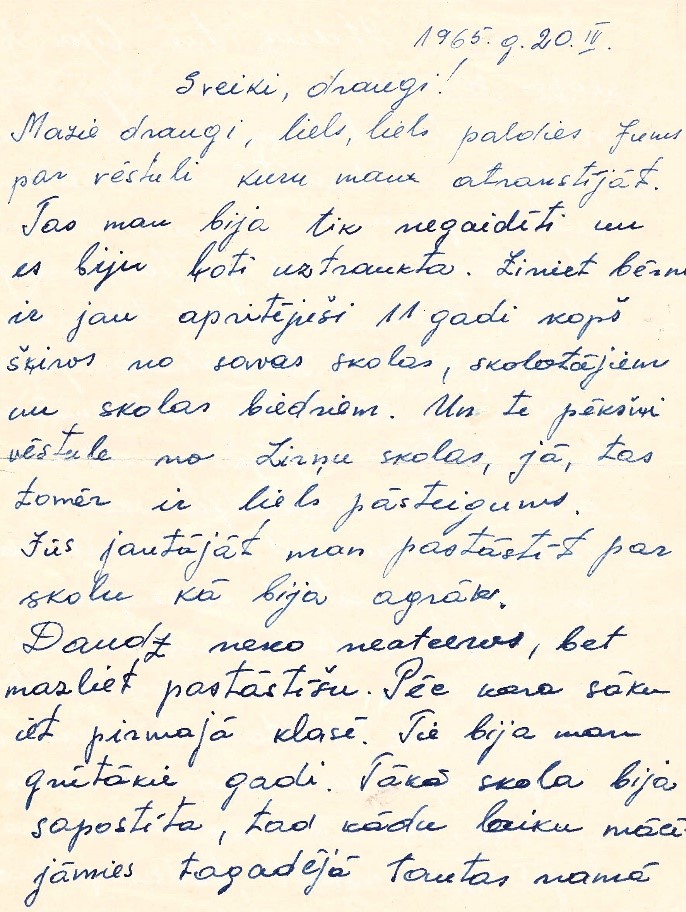 1965. g. 20. IV.
Sveiki, draugi!
Mazie draugi, liels, liels paldies Jums
par vēstuli kuru man atrastījāt.
Tas man bija tik negaidīti un
es biju ļoti uztraukta. Ziniet bērni
ir jau apritējuši 11 gadi kopš
šķiros no savas skolas, skolotājiem
un skolas biedriem. Un te pēkšņi
vēstule no Zirņu skolas, jā, tas
tomēr ir liels pāsteigums.
Jūs jautājāt man pastāstīt par
skolu kā bija agrāk.
Daudz neko neatceros, bet
mazliet pastāstīšu. Pēc kara sāku
iet pirmajā klasē. Tie bija man
grūtākie gadi. Tākā skola bija
sapostīta, tad kādu laiku mācī-
jāmies tagadējā tautas namā